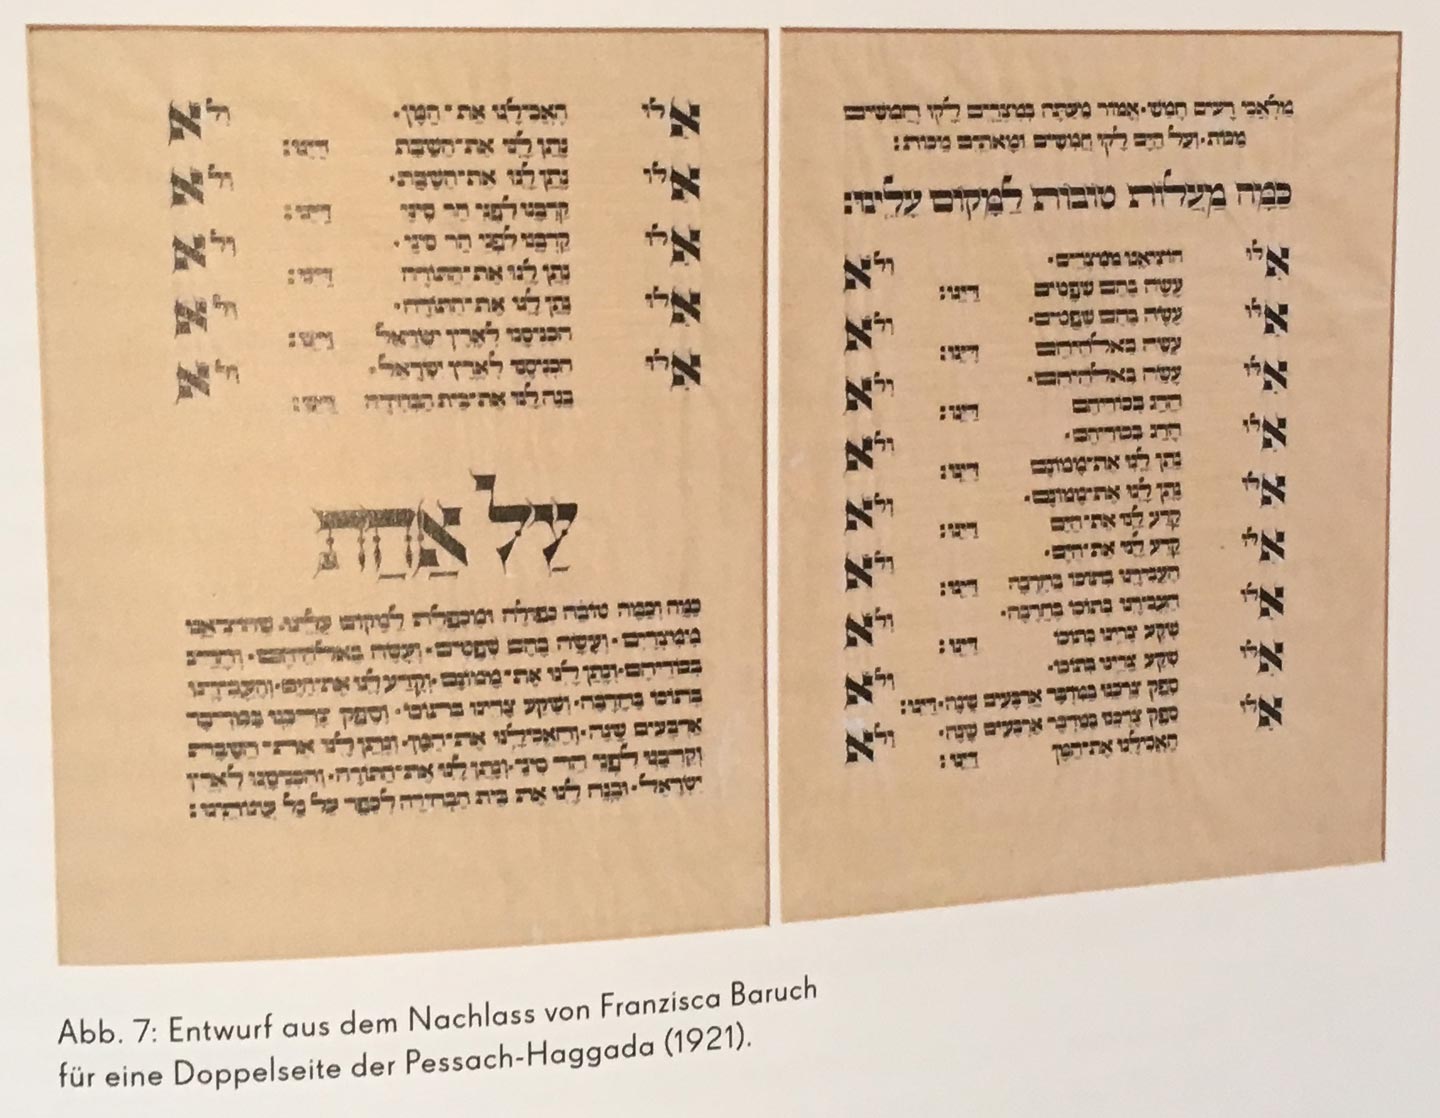 מלאכי רעים חמש·אמור מעתה במצרים לקו חמשים
מכות·ועל הים לקו חמשים ומאתים מכות:
כמה מעלות טובות למקום עלינו:
אלו הוציאנו ממצרים· ולא
עשה בהם שפטים דינו:
אלו עשה בהם שפטים· ולא
עשה באלהיהם דינו:
אלו עשה באלהיהם· ולא
הרג בכוריהם דינו:
אלו הרג בכוריהם· ולא
נתן לנו את־ממונם דינו:
אלו נתן לנו את־ממונם· ולא
קרע לנו את־הים דינו:
אלו קרע לנו את־הים· ולא
העבירנו בתוכו בחרבה דינו:
אלו העבירנו בתוכו בחרבה· ולא
שקע צרינו בתוכו דינו:
אלו שקע צרינו בתוכו· ולא
ספק צרכנו במדבר ארבעים שנה·דינו:
אלו ספק צרכנו במדבר ארבעים שנה· ולא
האכילנו את־המן דינו:
אלו האכילנו את־המן· ולא
נתן לנו את־השבת דינו:
אלו נתן לנו את־השבת· ולא
קרבנו לפני הר סיני דינו:
אלו קרבנו לפני הר סיני· ולא
נתן לנו את־התורה דינו:
אלו נתן לנו את־התורה· ולא
הכניסנו לארץ ישראל דינו:
אלו הכניסנו לארץ ישראל· ולא
בנה לנו את־בית הבחירה דינו:
על אחת
כמה וכמה טובה כפולה ומכפלת למקום עלינו· שהוציאנו
ממצרים· ועשה בהם שפטים· ועשה באלהיהם· והרג
בכוריהם·ונתן לנו את־ממונם·וקרע לנו את־הים·והעבירנו
בתוכו בחרבה· ושקע צרינו בתוכו· וספק צרכנו במדבר
ארבעים שנה· והאכילנו את־המן· ונתן לנו את־השבת
וקרבנו לפני הר סיני·ונתן לנו את־התורה·והכניסנו לארץ
ישראל· ובנה לנו את בית הבחירה לכפר על כל עונותינו:
Abb. 7: Entwurf aus dem Nachlass von Franzisca Baruch
für eine Doppelseite der Pessach-Haggada (1921).